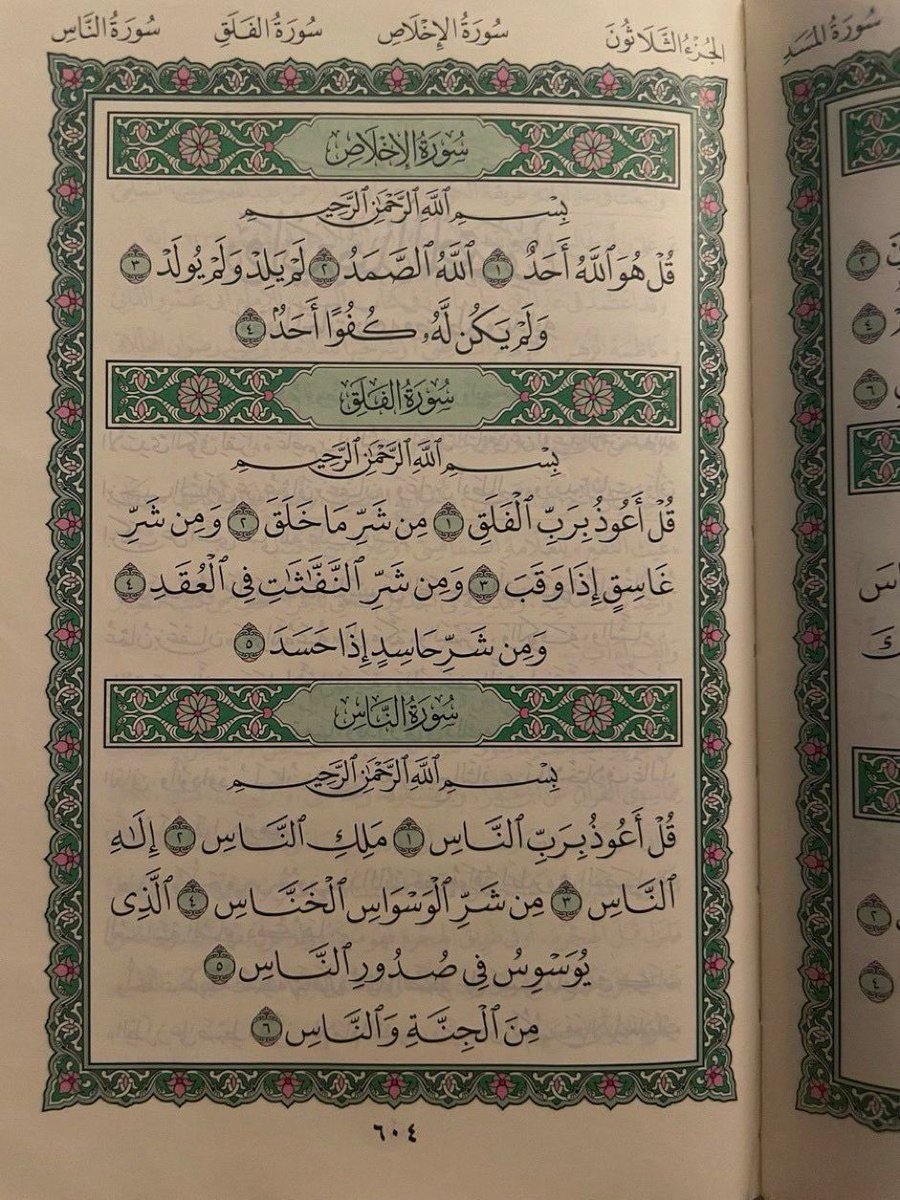 الجُزْءُ الثَّلَاثُونَ سُورَةُ الإِخْلَاصِ سُورَةُ الفَلَقِ سُورَةُ النَّاسِ
سُورَةُ المَسَدِ
سُورَةُ الإِخْلَاصِ
بِسْمِ ٱللَّهِ ٱلرَّحْمَٰنِ ٱلرَّحِيمِ
قُلْ هُوَ ٱللَّهُ أَحَدٌ ١ ٱللَّهُ ٱلصَّمَدُ ٢ لَمْ يَلِدْ وَلَمْ يُولَدْ ٣
وَلَمْ يَكُن لَّهُۥ كُفُوًا أَحَدٌۢ ٤
سُورَةُ الفَلَقِ
بِسْمِ ٱللَّهِ ٱلرَّحْمَٰنِ ٱلرَّحِيمِ
قُلْ أَعُوذُ بِرَبِّ ٱلْفَلَقِ ١ مِن شَرِّ مَا خَلَقَ ٢ وَمِن شَرِّ
غَاسِقٍ إِذَا وَقَبَ ٣ وَمِن شَرِّ ٱلنَّفَّٰثَٰتِ فِى ٱلْعُقَدِ ٤
وَمِن شَرِّ حَاسِدٍ إِذَا حَسَدَ ٥
سُورَةُ النَّاسِ
بِسْمِ ٱللَّهِ ٱلرَّحْمَٰنِ ٱلرَّحِيمِ
قُلْ أَعُوذُ بِرَبِّ ٱلنَّاسِ ١ مَلِكِ ٱلنَّاسِ ٢ إِلَٰهِ
ٱلنَّاسِ ٣ مِن شَرِّ ٱلْوَسْوَاسِ ٱلْخَنَّاسِ ٤ ٱلَّذِى
يُوَسْوِسُ فِى صُدُورِ ٱلنَّاسِ ٥
مِنَ ٱلْجِنَّةِ وَٱلنَّاسِ ٦
٦٠٤